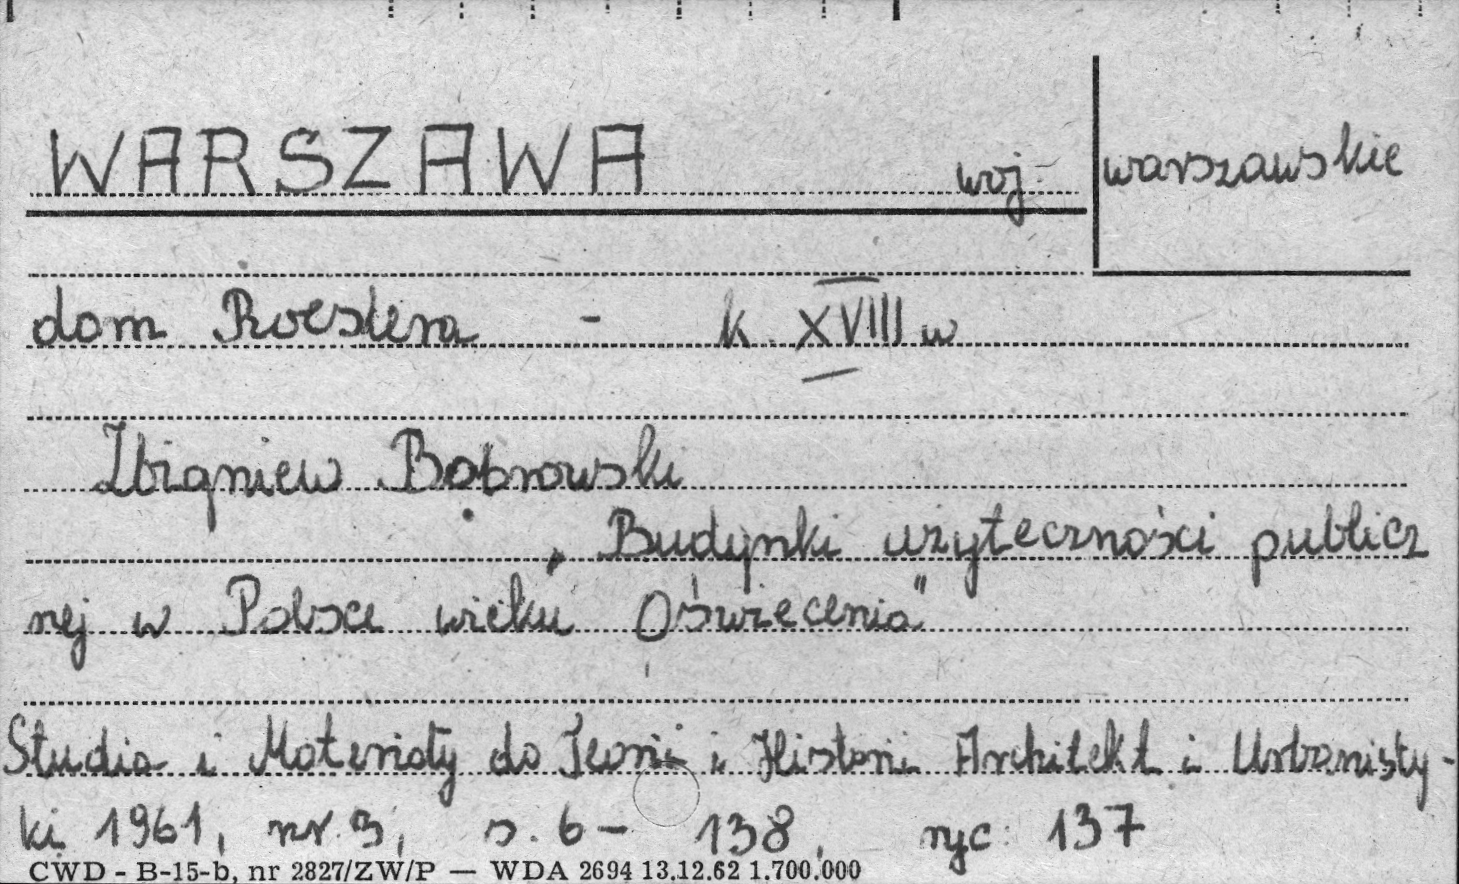 WARSZAWA woj. warszawskie
dom Roeslera - k. XVIII w
Zbigniew Bobrowski
„Budynki użyteczności publicz
nej w Polsce wieku Oświecenia"
Studia i Materiały do Teorii i Historii Architekt i Urbanisty-
ki 1961, nr. 3, s. 6 - 138, ryc: 137
CWD - B-15-b, nr 2827/ZW/P — WDA 2694 13.12.62 1.700.000